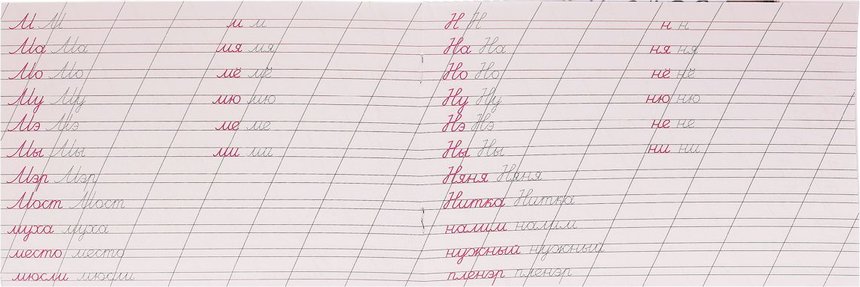 М М м м
Ма Ма мя мя
Мо Мо мё мё
Му Му мю мю
Мэ Мэ ме ме
Мы Мы ми ми
Мэр Мэр
Мост Мост
муха муха
место место
мюсли мюсли
Н Н н н
На На ня ня
Но Но нё нё
Ну Ну ню ню
Нэ Нэ не не
Ны Ны ни ни
Няня Няня
Нитка Нитка
налим налим
нужный нужный
пленэр пленэр